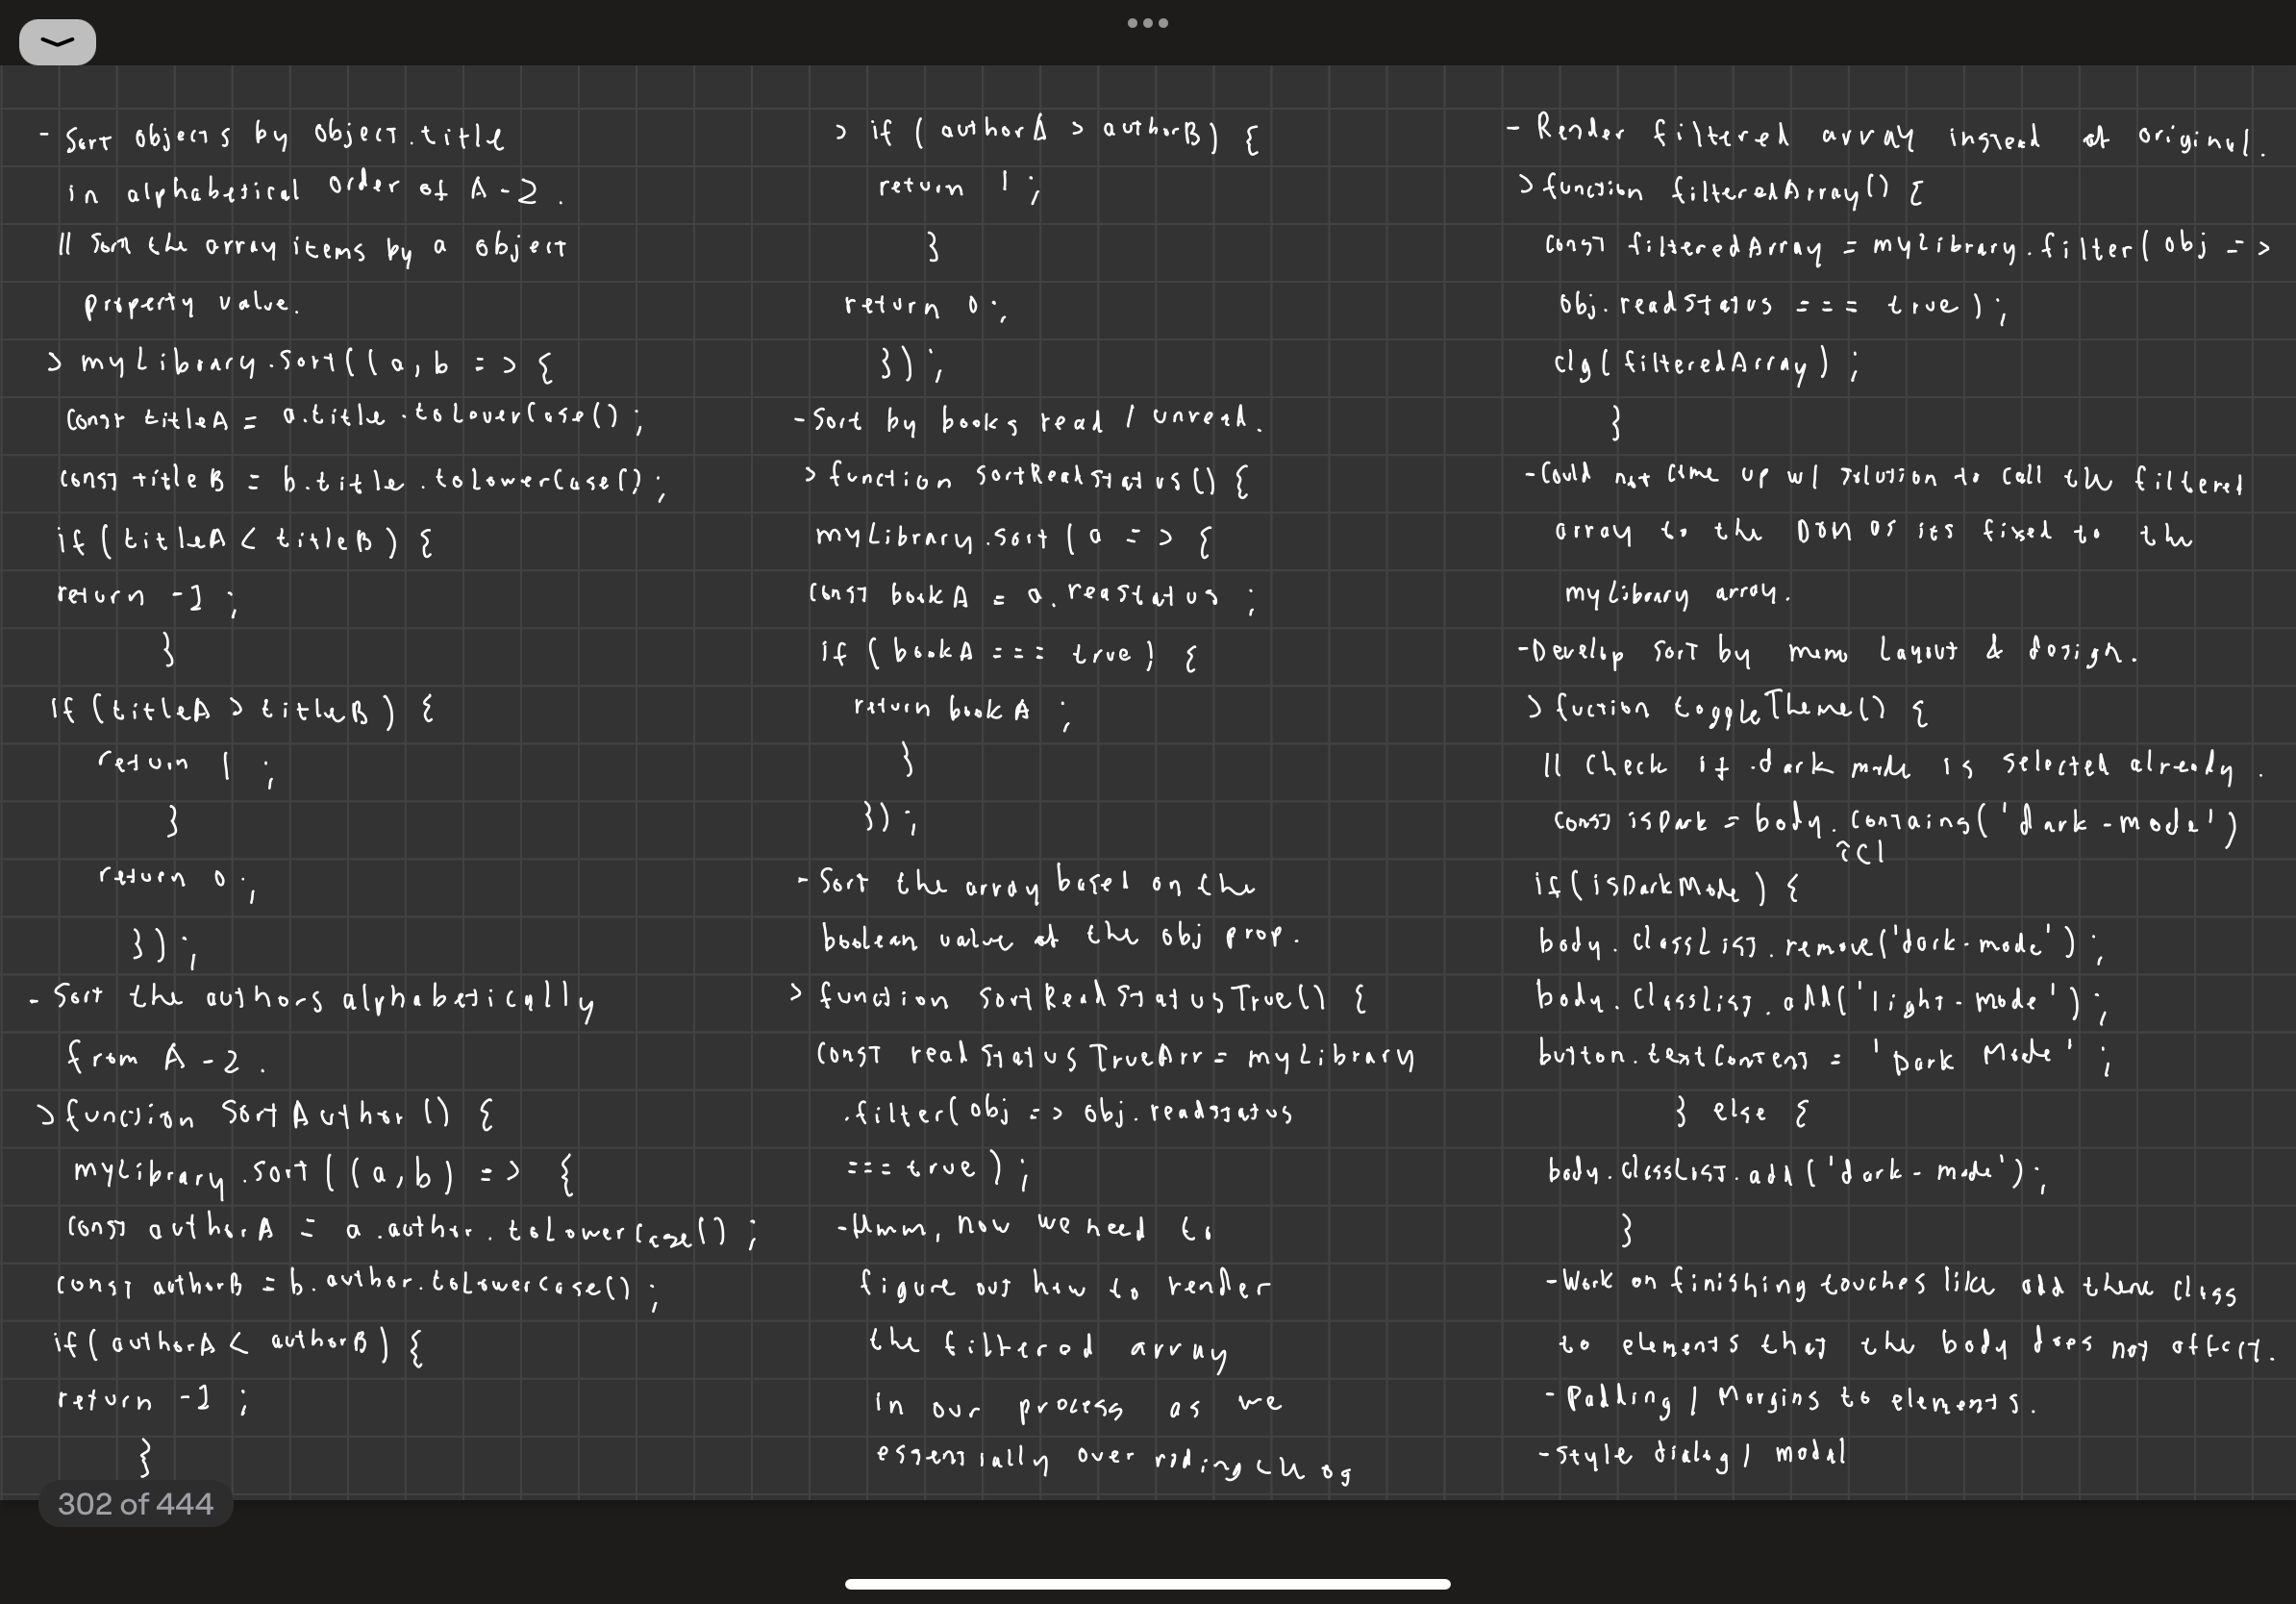 - Sort objects by object.title
in alphabetical order of A-Z.
// Sort the array items by a object
property value.
> myLibrary.sort((a,b => {
const titleA = a.title.toLowerCase();
const titleB = b.title.toLowerCase();
if (titleA < titleB) {
return -1;
}
if (titleA > titleB) {
return 1;
}
return 0;
});
- Sort the authors alphabetically
from A-Z.
> function sortAuthor() {
myLibrary.sort((a,b) => {
const authorA = a.author.toLowerCase();
const authorB = b.author.toLowerCase();
if (authorA < authorB) {
return -1;
}
> if (authorA > authorB) {
return 1;
}
return 0;
});
- Sort by books read / unread.
> function sortReadStatus() {
myLibrary.sort(a => {
const bookA = a.reaStatus;
if (bookA === true) {
return bookA;
}
});
- Sort the array based on the
boolean value of the obj prop.
> function sortReadStatusTrue() {
const readStatusTrueArr = myLibrary
.filter(obj => obj.readStatus
=== true);
- Hmm, now we need to
figure out how to render
the filtered array
in our process as we
essentially over riding the og
- Render filtered array instead of original.
> function filteredArray() {
const filteredArray = myLibrary.filter(obj =>
obj.readStatus === true);
clg(filteredArray);
}
- Could not come up w/ solution to call the filtered
array to the DOM as its fixed to the
myLibrary array.
- Develop sort by menu layout & design.
> fuction toggleTheme() {
// Check if .dark mode is selected already.
const isDark = body.contains('dark-mode')
^cl
if(isDarkMode) {
body.classList.remove('dark-mode');
body.classList.add('light-mode');
button.textContent = 'Dark Mode';
} else {
body.classList.add('dark-mode');
}
- Work on finishing touches like add theme class
to elements that the body does not affect.
- Padding / Margins to elements.
- Style dialog / modal
302 of 444